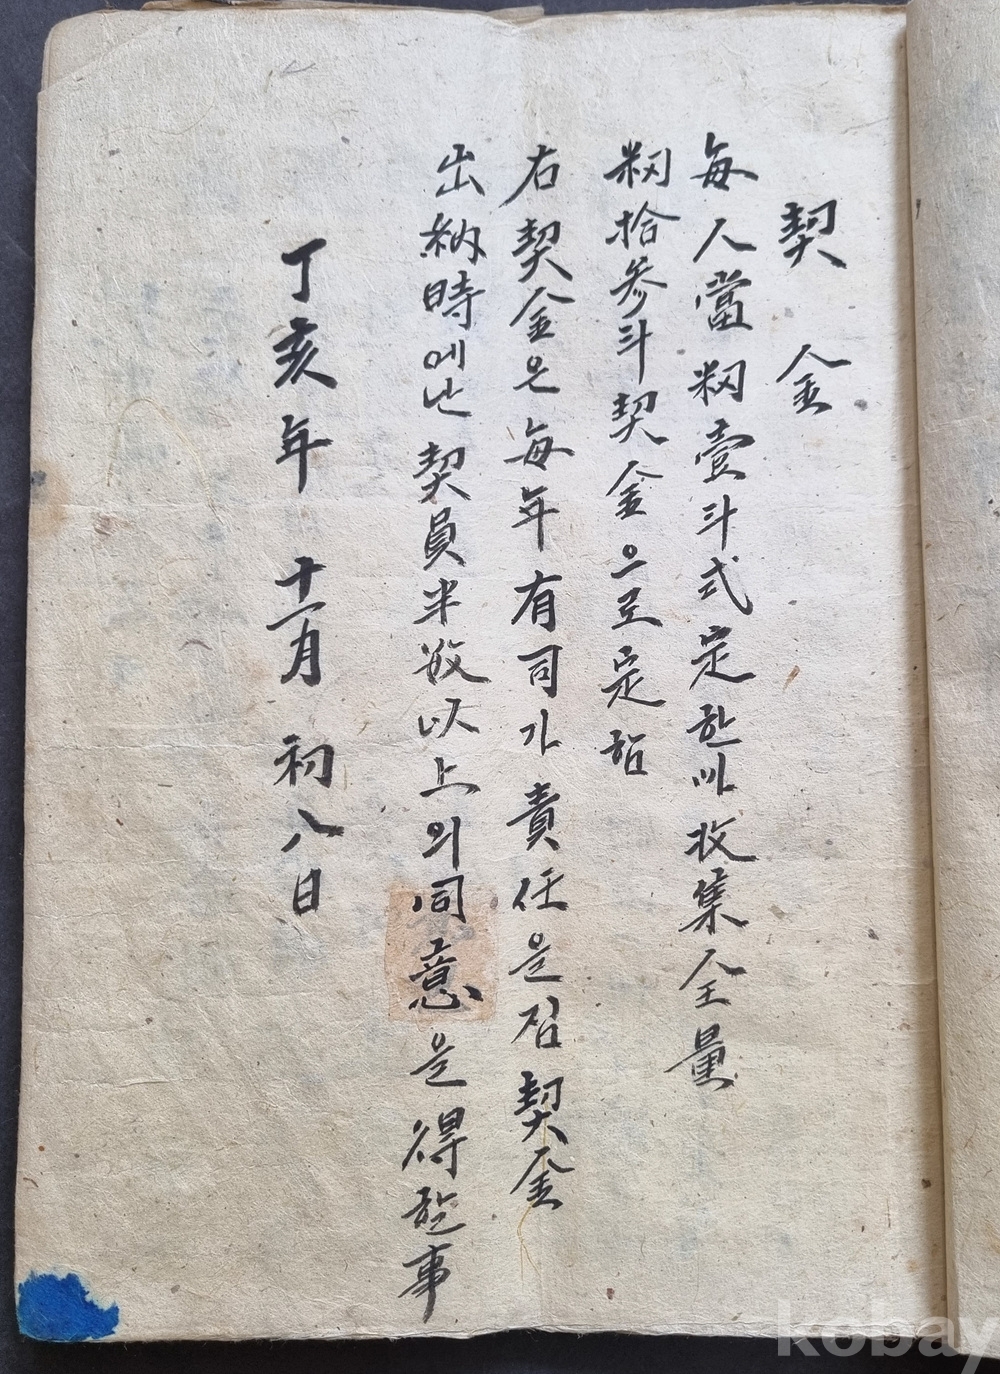 契金
每人當籾壹斗式定한바收集全量
籾拾參斗契金으로定함
右契金은每年有司가責任을짐契金
出納時에난契員半數以上의同意을得할事
丁亥年 十一月 初八日
kobay